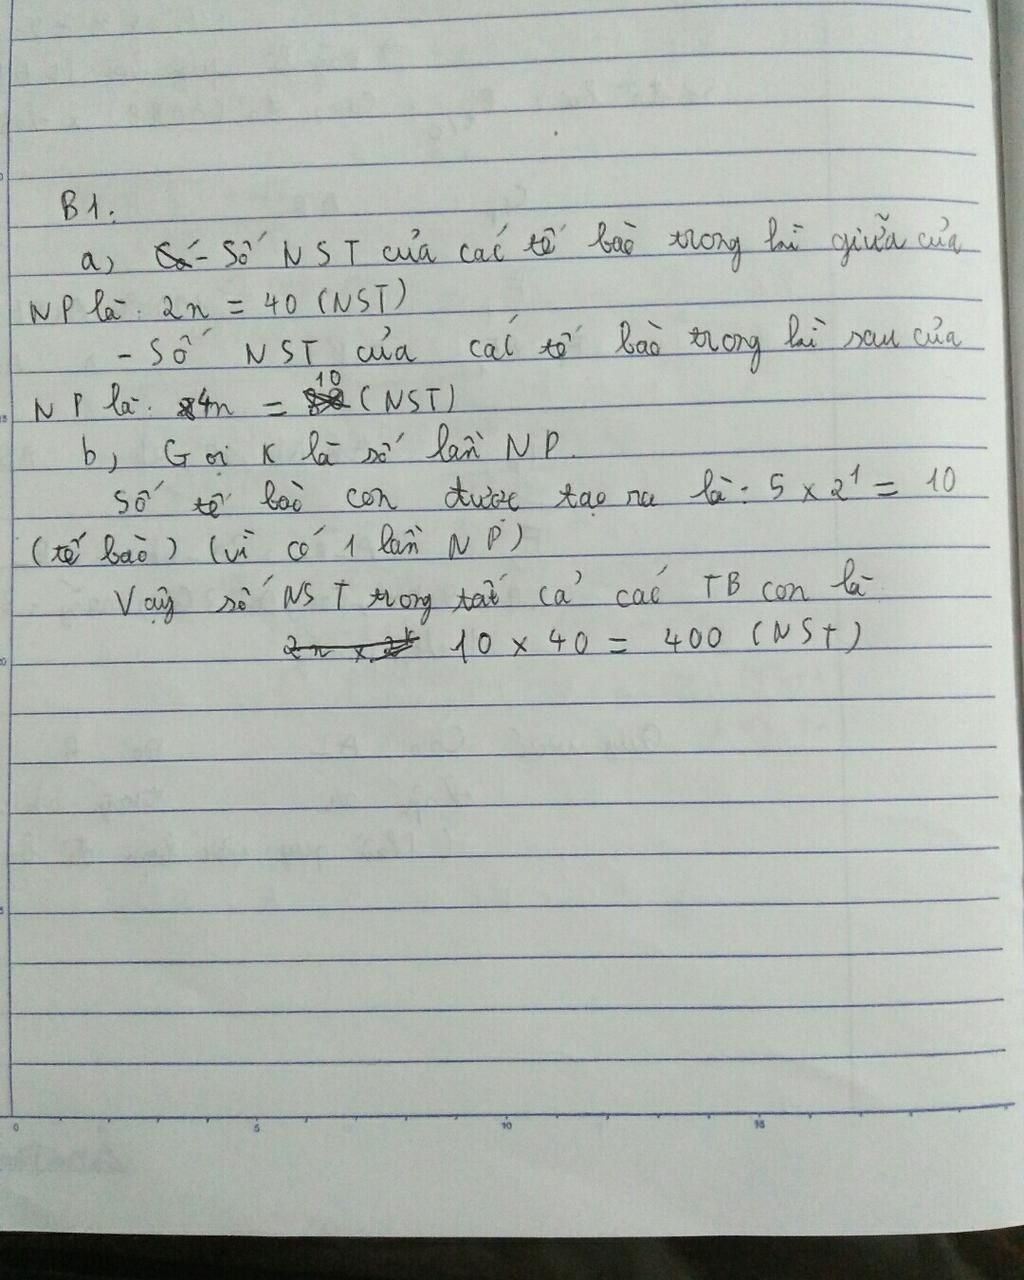 B1:
a, - Số NST của các tế bào trong kì giữa của
NP là: 2n = 40 (NST)
- Số NST của các tế bào trong kì sau của
NP là: 4n = 10 (NST)
b, Gọi K là số lần NP.
Số tế bào con được tạo ra là: 5 x 2¹ = 10
(tế bào) (vì có 1 lần NP)
Vậy số NST trong tất cả các TB con là
10 x 40 = 400 (NST)
0 5 10 15